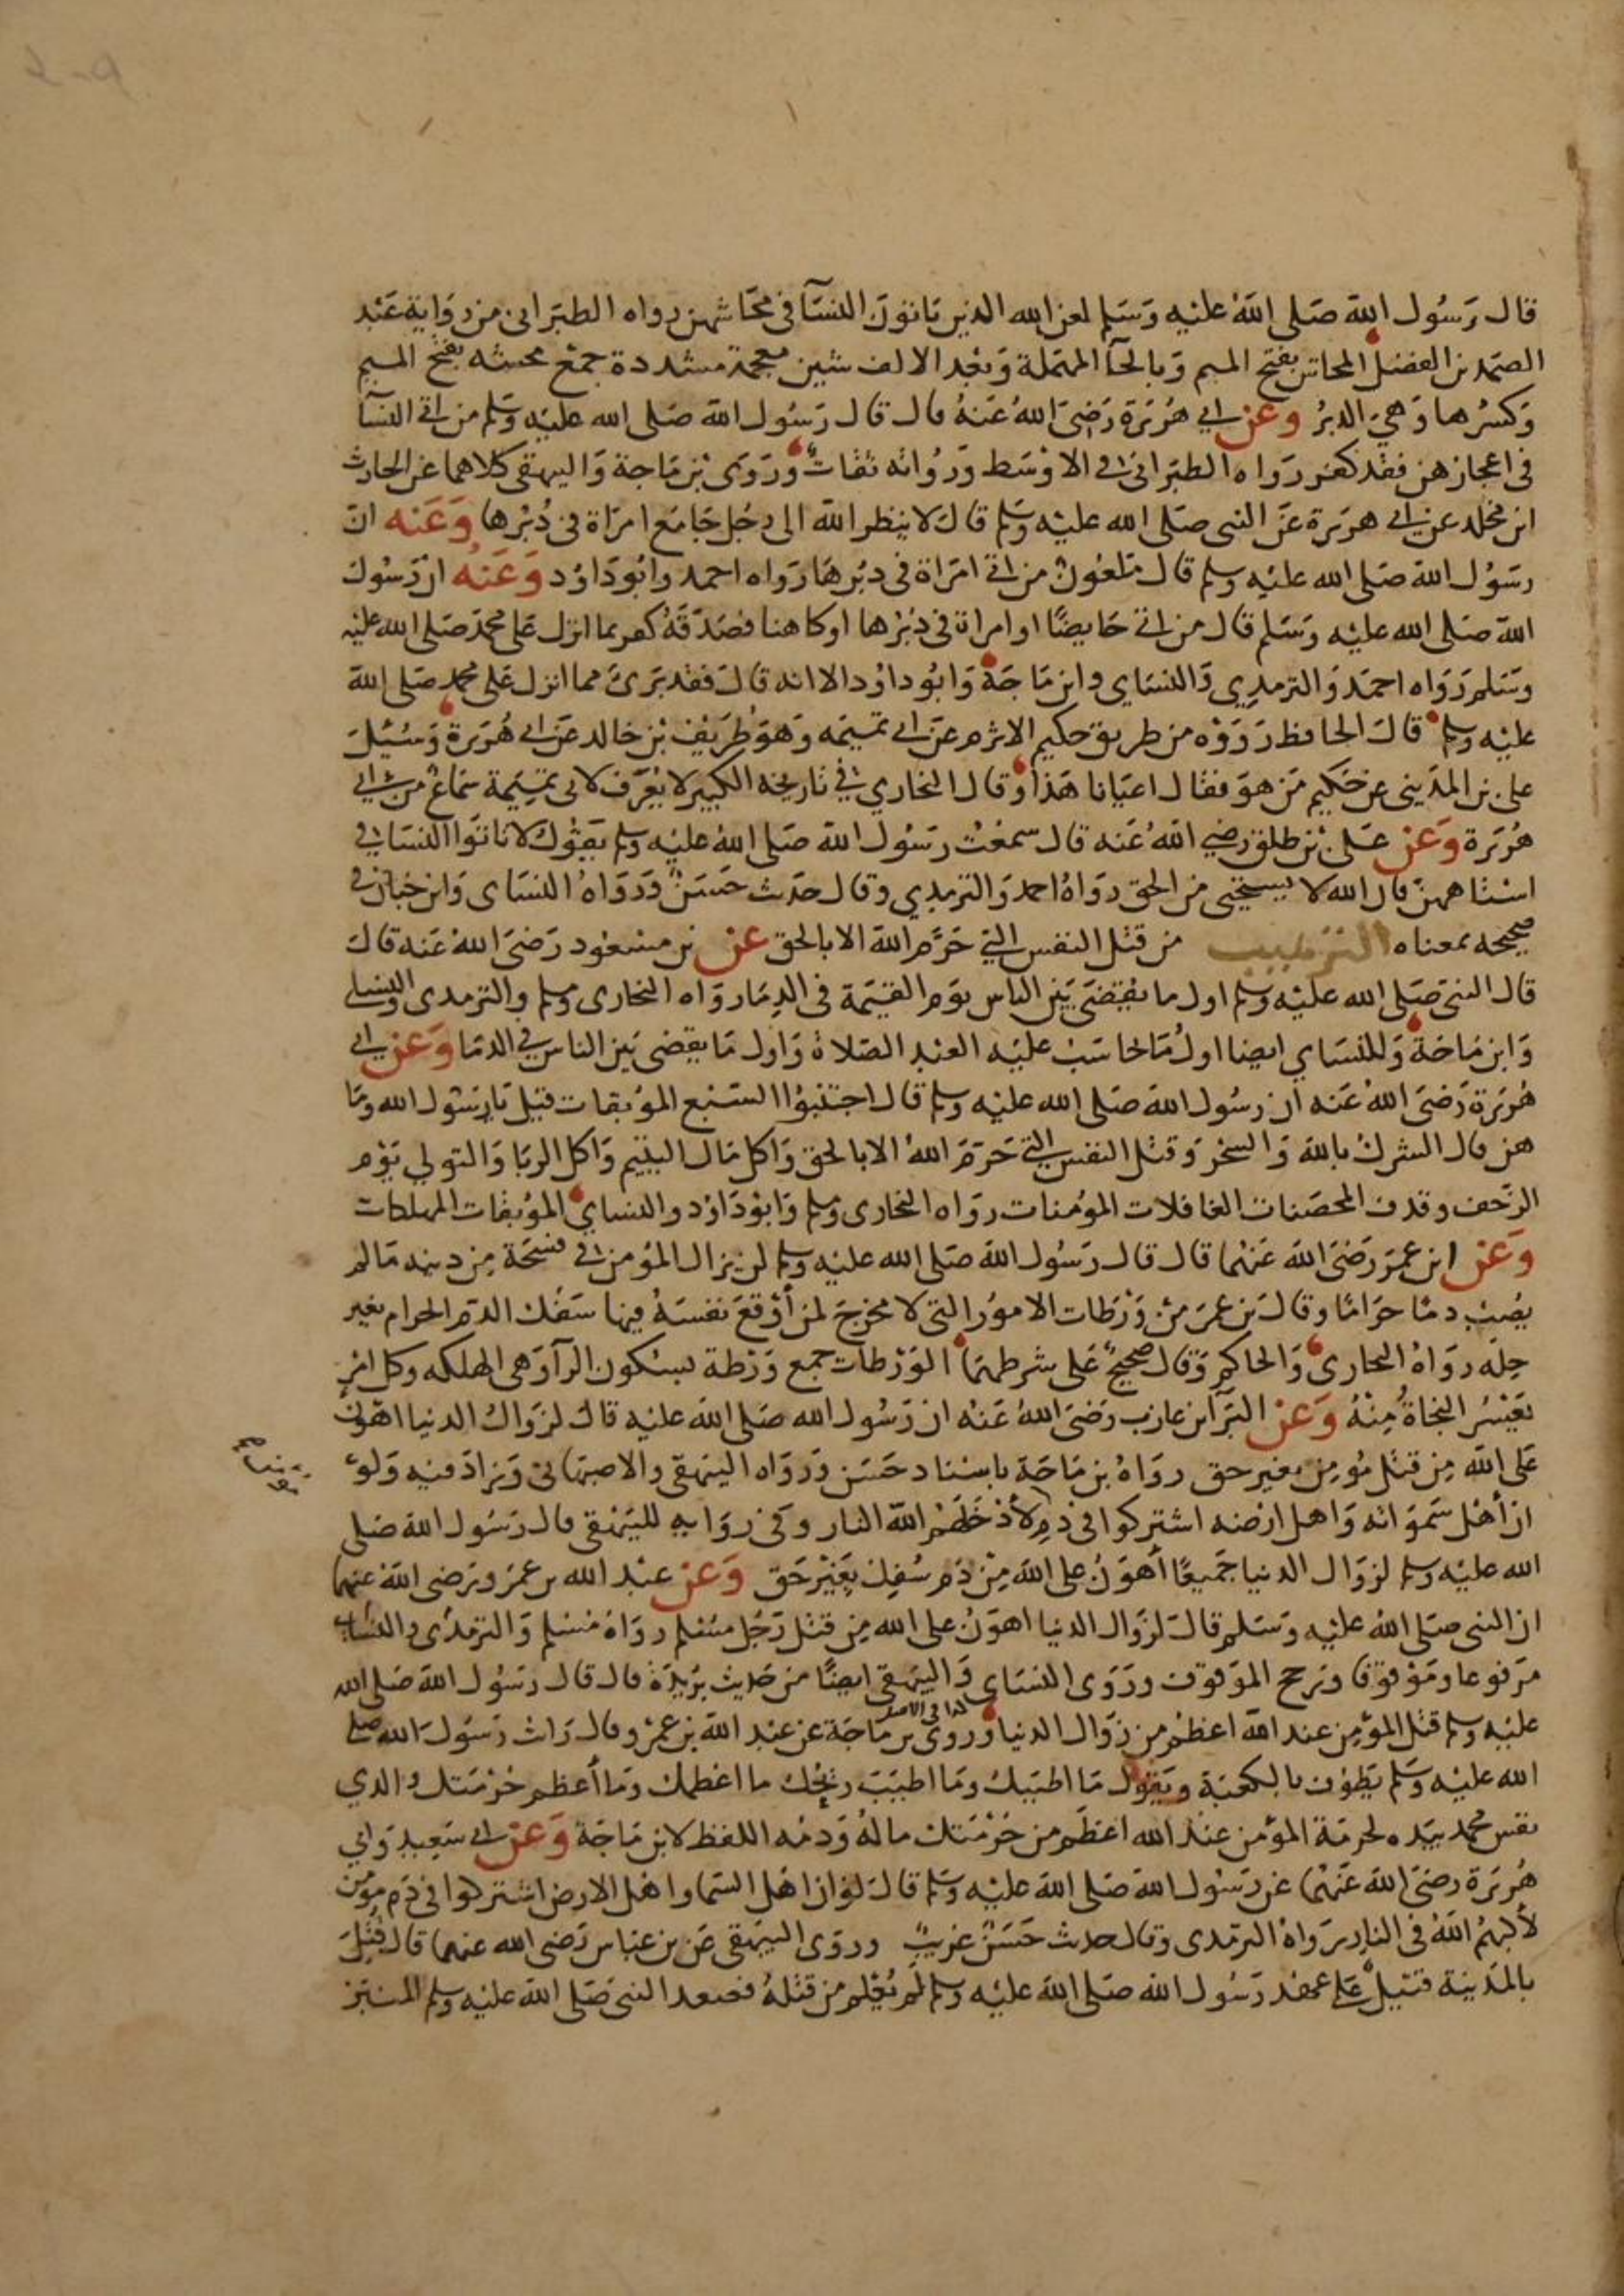 قال رسول الله صلى الله عليه وسلم لعن الله الذين ياتون النسآ في محاشهن رواه الطبراني من رواية عبد
الصمد بن الفضل المحاش بفتح الميم وبالحآ المهملة وبعد الالف شين معجمة مشددة جمع محشه بفتح الميم
وكسرها وهي الدبر وعن ابي هريرة رضي الله عنه قال قال رسول الله صلى الله عليه وسلم من اتى النسآ
في اعجازهن فقد كفر رواه الطبراني في الاوسط ورواته ثقات وروى بن ماجة والبيهقي كلاهما عن الحارث
ابن مخلد عن ابي هريرة عن النبي صلى الله عليه وسلم قال لا ينظر الله الى رجل جامع امراة في دبرها وعنه ان
رسول الله صلى الله عليه وسلم قال ملعون من اتى امراة في دبرها رواه احمد وابو داود وعنه ان رسول
الله صلى الله عليه وسلم قال من اتى حايضا او امراة في دبرها او كاهنا فصدقه كفر بما انزل على محمد صلى الله عليه
وسلم رواه احمد والترمدي والنساي وابن ماجة وابو داود الا انه قال فقد برئ مما انزل على محمد صلى الله
عليه وسلم قال الحافظ رووه من طريق حكيم الاثرم عن ابي تميمه وهو طريف بن خالد عن ابي هريرة وسئل
علي بن المديني عن حكيم من هو فقال اعيانا هذا وقال البخاري في تاريخه الكبير لا يعرف لابي تميمة سماع من ابي
هريرة وعن علي بن طلق رضي الله عنه قال سمعت رسول الله صلى الله عليه وسلم يقول لا تاتوا النسا في
استاههن فان الله لا يستحيي من الحق رواه احمد والترمدي وقال حديث حسن ورواه النساي وابن حبان في
صحيحه بمعناه الترهيب من قتل النفس التي حرم الله الا بالحق عن بن مسعود رضي الله عنه قال
قال النبي صلى الله عليه وسلم اول ما يقضى بين الناس يوم القيمة في الدما رواه البخاري ومسلم والترمدي والنساي
وابن ماجة وللنساي ايضا اول ما يحاسب عليه العبد الصلاة واول ما يقضى بين الناس في الدما وعن ابي
هريرة رضي الله عنه ان رسول الله صلى الله عليه وسلم قال اجتنبوا السبع الموبقات قيل يا رسول الله وما
هن قال الشرك بالله والسحر وقتل النفس التي حرم الله الا بالحق واكل مال اليتيم واكل الربا والتولي يوم
الزحف وقدف المحصنات الغافلات المومنات رواه البخاري ومسلم وابو داود والنساي الموبقات المهلكات
وعن ابن عمر رضي الله عنهما قال قال رسول الله صلى الله عليه وسلم لن يزال المؤمن في فسحة من دينه ما لم
يصب دما حراما وقال بن عمر من ورطات الامور التي لا مخرج لمن أوقع نفسه فيها سفك الدم الحرام بغير
حله رواه البخاري والحاكم وقال صحيح على شرطهما الورطات جمع ورطة بسكون الرآ وهي الهلكه وكل امر
تعسر النجاة منه وعن البرآ ابن عازب رضي الله عنه ان رسول الله صلى الله عليه قال لزوال الدنيا اهون
على الله من قتل مومن بغير حق رواه بن ماجة باسناد حسن ورواه البيهقي والاصبهاني وزاد فيه ولو
ان أهل سمواته واهل ارضه اشتركوا في دم لأدخلهم الله النار وفي رواية للبيهقي قال رسول الله صلى
الله عليه وسلم لزوال الدنيا جميعا أهون على الله من دم سفك بغير حق وعن عبد الله بن عمرو رضي الله عنهما
ان النبي صلى الله عليه وسلم قال لزوال الدنيا اهون على الله من قتل رجل مسلم رواه مسلم والترمذي والنساي
مرفوعا وموقوفا ورجح الموقوف وروى النساي والبيهقي ايضا من حديث بريدة قال قال رسول الله صلى الله
عليه وسلم قتل المؤمن عند الله اعظم من زوال الدنيا وروى بن ماجة عن عبد الله بن عمرو قال رايت رسول الله صلى
كذا في الاصل
الله عليه وسلم يطوف بالكعبة ويقول ما اطيبك وما اطيب ريحك ما اعظمك وما أعظم حرمتك والدي
نفس محمد بيده لحرمة المؤمن عند الله اعظم من حرمتك ماله ودمه اللفظ لابن ماجة وعن ابي سعيد وابي
هريرة رضي الله عنهما عن رسول الله صلى الله عليه وسلم قال لو ان اهل السما واهل الارض اشتركوا في دم مومن
لأكبهم الله في النار رواه الترمدي وقال حديث حسن غريب وروى البيهقي عن بن عباس رضي الله عنهما قال قتل
بالمدينة قتيل على عهد رسول الله صلى الله عليه وسلم لم يعلم من قتله فصعد النبي صلى الله عليه وسلم المنبر